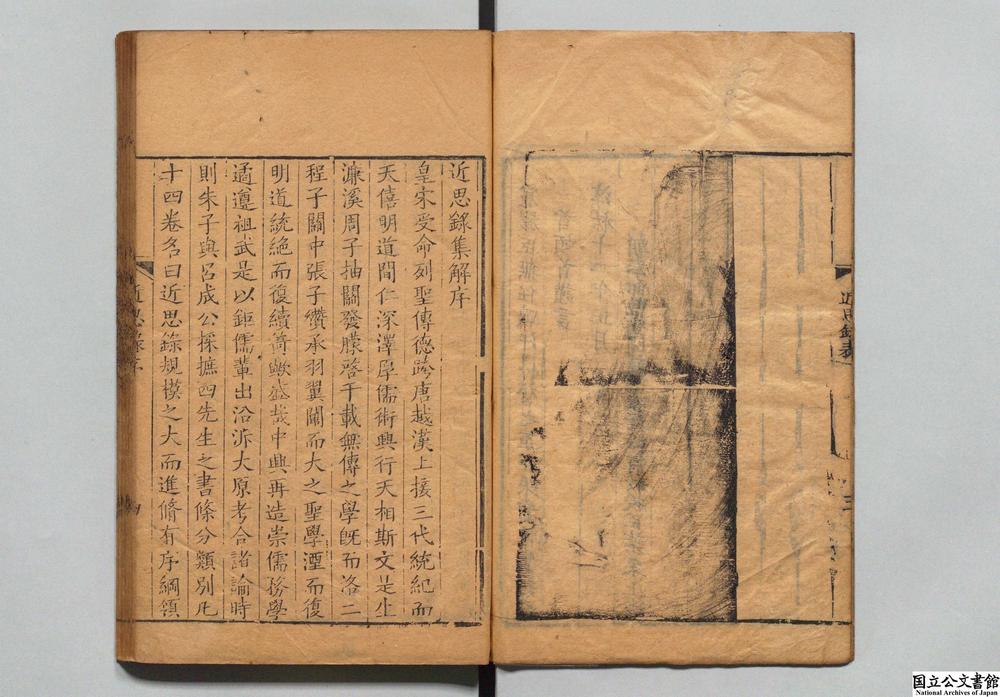 近思錄表
三
近思錄集解序
皇宋受命列聖傳德跨唐越漢上接三代統紀而
天僖明道間仁深澤厚儒術興行天相斯文是生
濂溪周子抽關發朦啓千載無傳之學旣而洛二
程子關中張子纘承羽翼闡而大之聖學湮而復
明道統絶而復續猗歟盛哉中興再造崇儒務學
遹遵祖武是以鉅儒輩出沿泝大原考合諸論時
則朱子與呂成公採摭四先生之書條分類別凡
十四卷名曰近思錄規模之大而進脩有序綱領
国立公文書館
National Archives of Japan